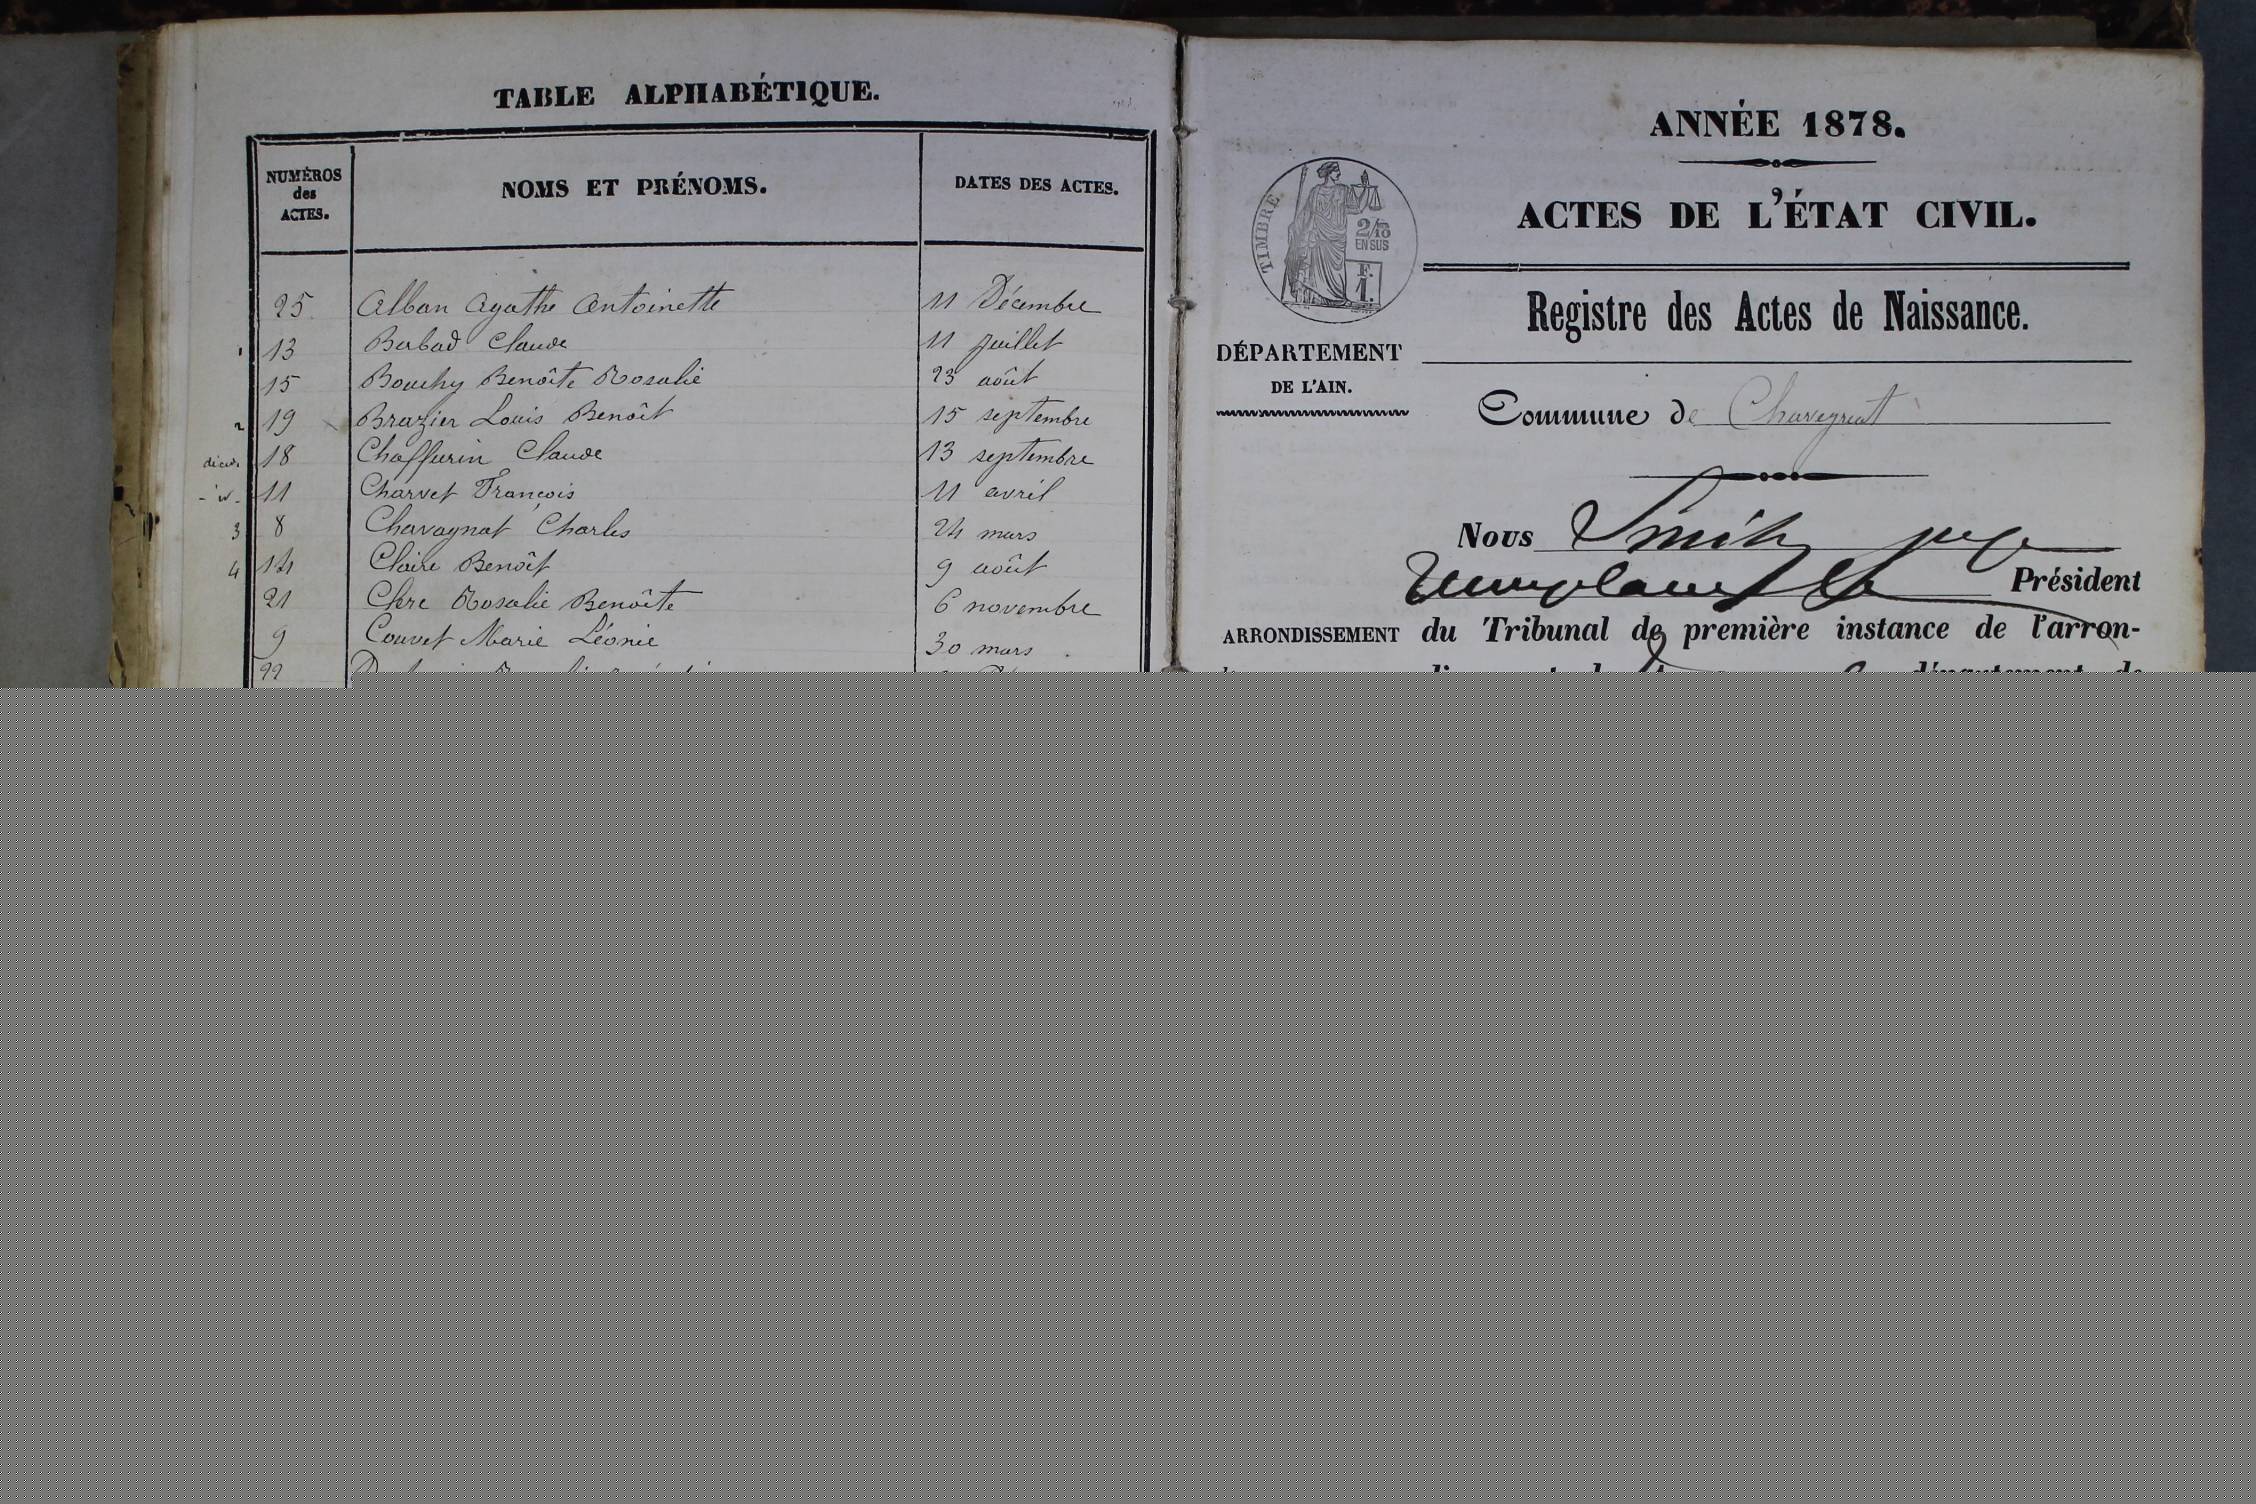 TABLE ALPHABÉTIQUE.
NUMÉROS des ACTES. NOMS ET PRÉNOMS. DATES DES ACTES.
25 Alban Agathe Antoinette 11 Décembre
13 Barbad Claude 11 juillet
15 Bouchy Benoîte Rosalie 23 août
2 19 Brazier Louis Benoît 15 septembre
18 Chaffurin Claude 13 septembre
11 Charvet François 11 avril
3 8 Chavagnat Charles 24 mars
4 14 Claire Benoît 9 août
21 Clere Rosalie Benoîte 6 novembre
9 Couvet Marie Léonie 30 mars
22
ANNÉE 1878.
ACTES DE L'ÉTAT CIVIL.
TIMBRE
2/10
EN SUS
F.
1.
Registre des Actes de Naissance.
DÉPARTEMENT
DE L'AIN.
Commune de Chaveyriat
Nous Smith juge
remplaçant le Président
ARRONDISSEMENT du Tribunal de première instance de l'arron-
département de